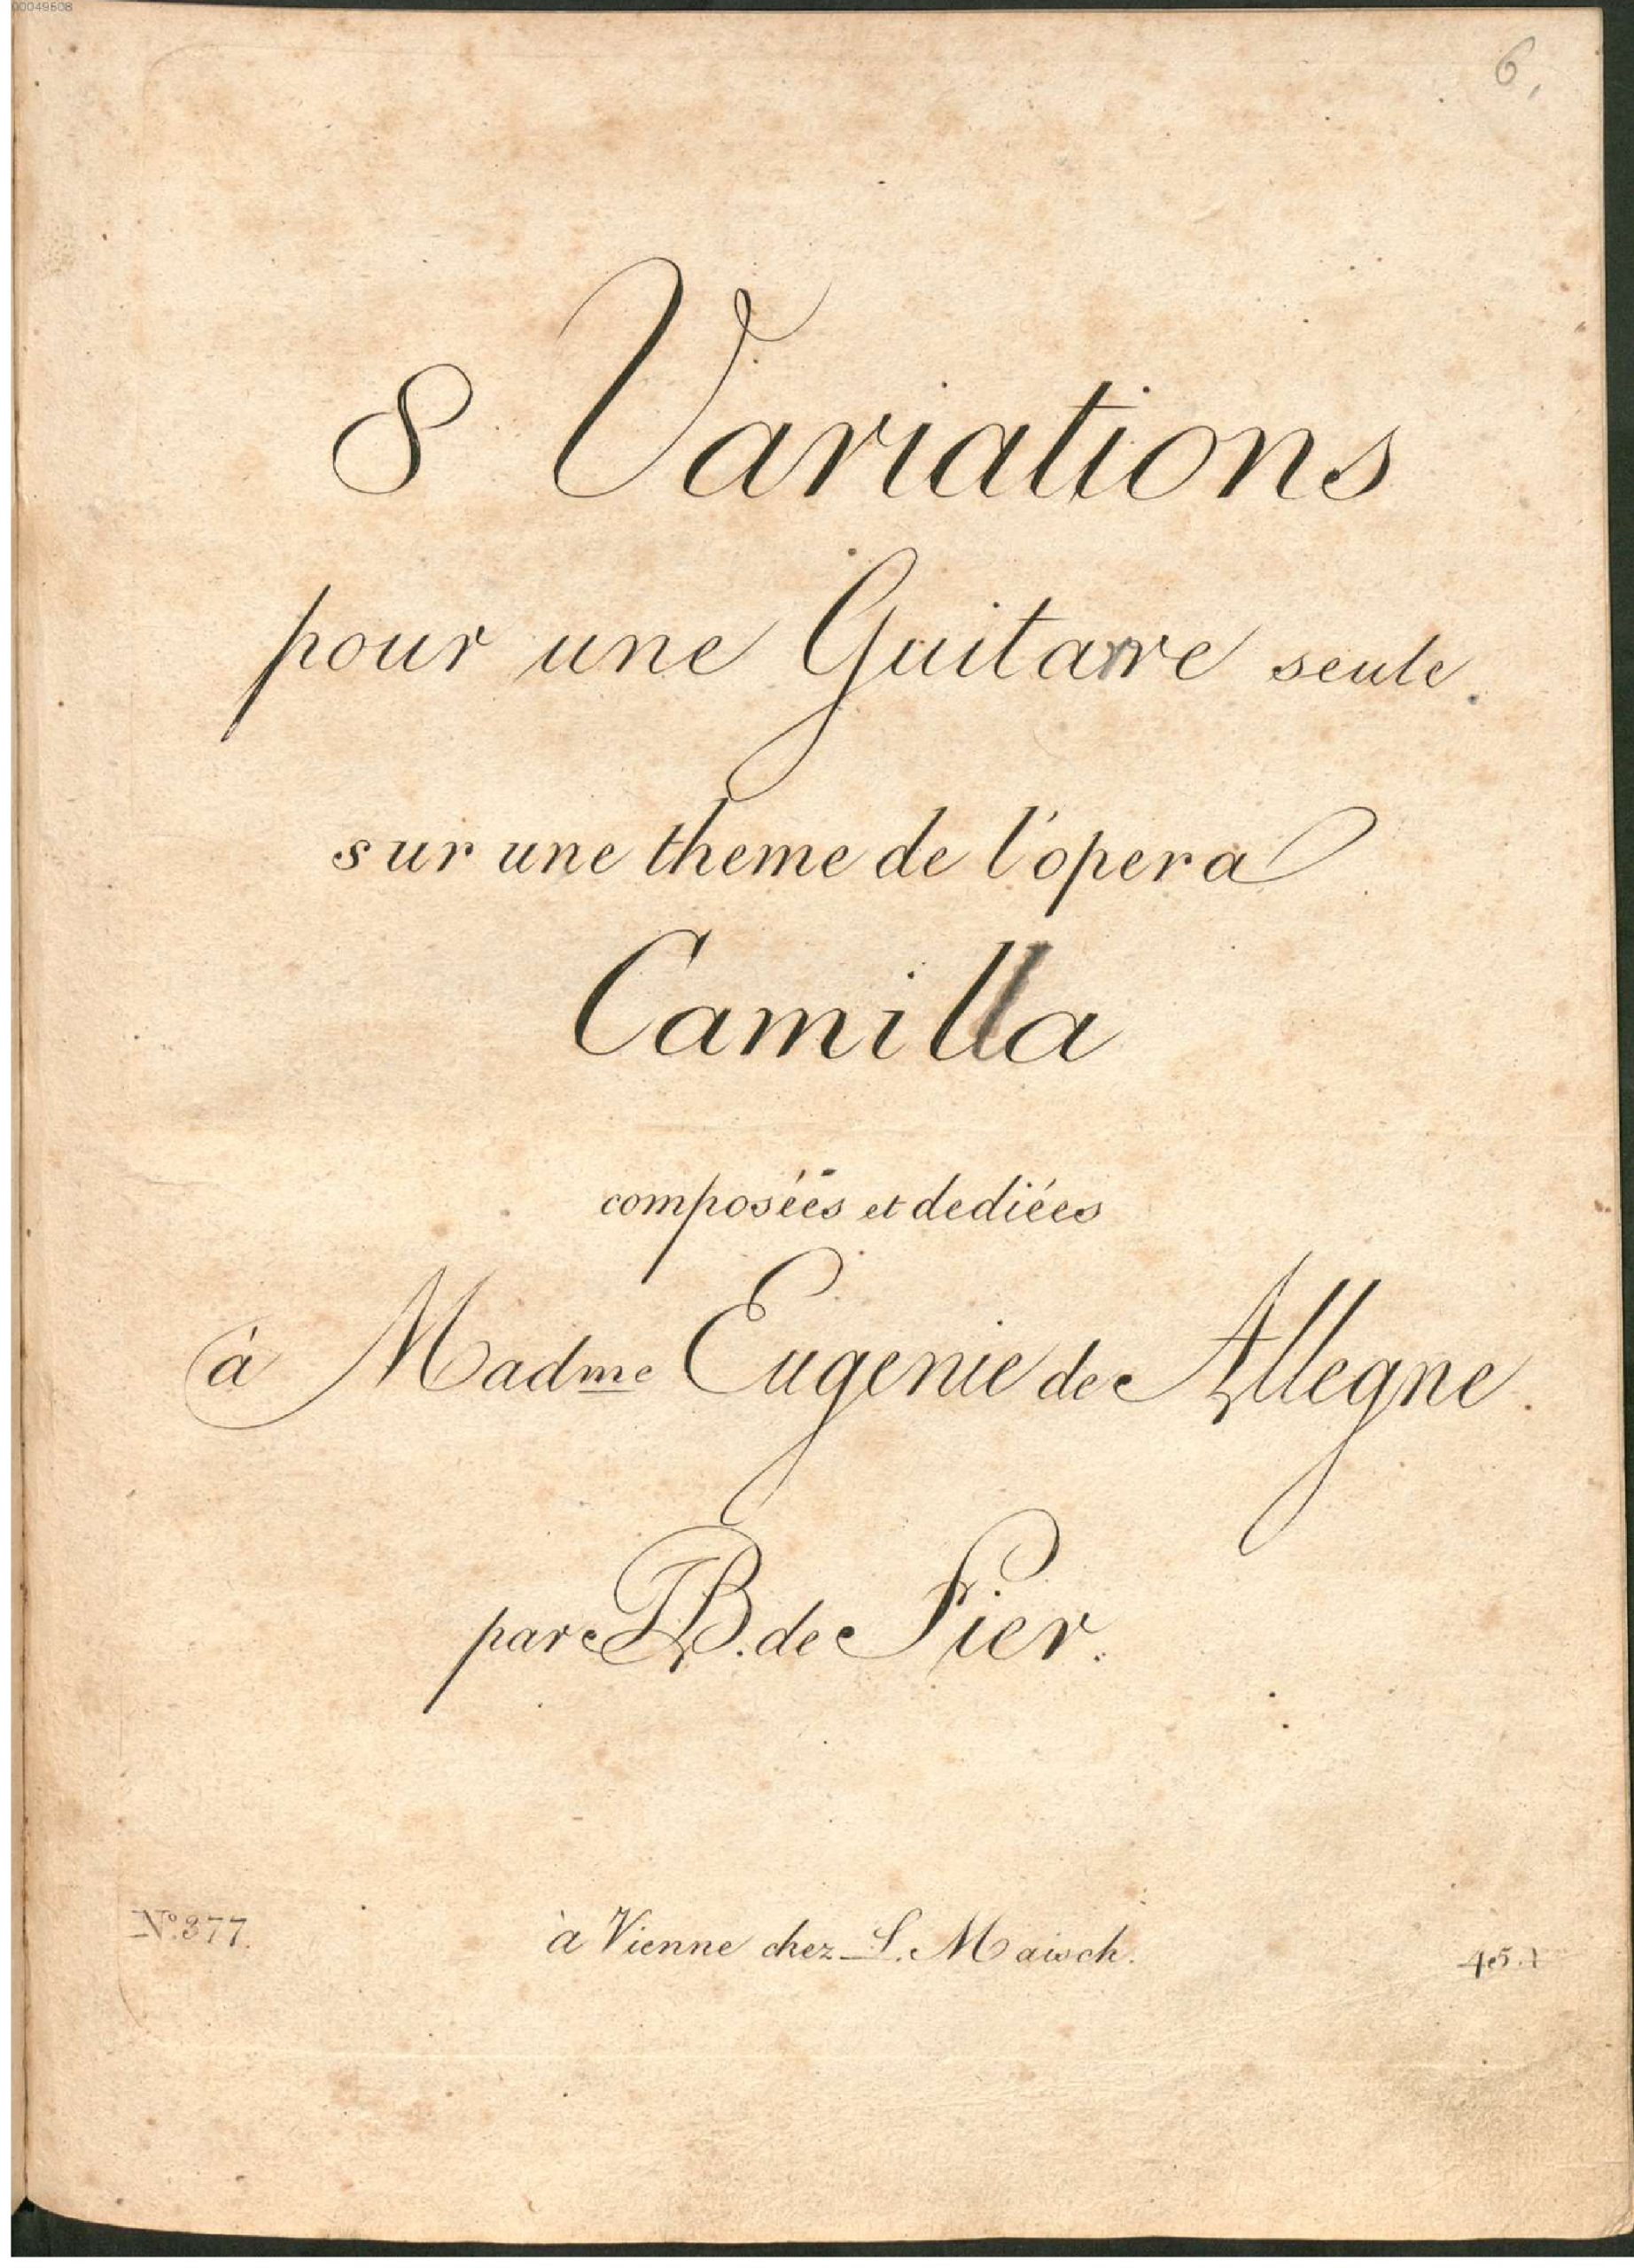 00049508
6,
8 Variations
pour une Guitarre seule.
sur une theme de l'opera
Camilla
composées et dediées
à Madme Eugenie de Allegne.
par J.B. de Fier.
No. 377.
à Vienne chez L. Maisch.
45.x